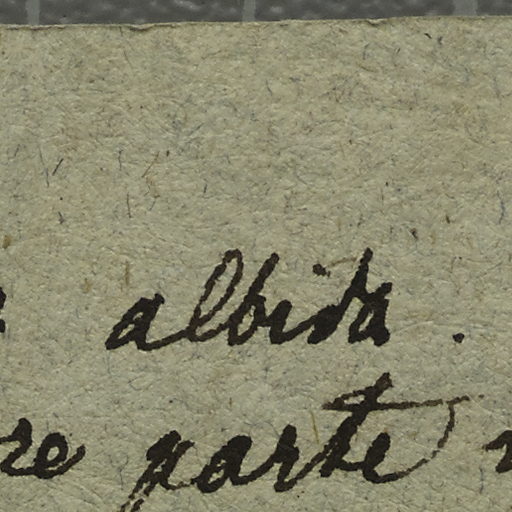 albida .
re parte